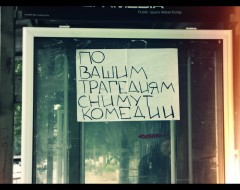 ПО
ВАШИМ
ТРАГЕДИЯМ
СНИМУТ
КОМЕДИИ